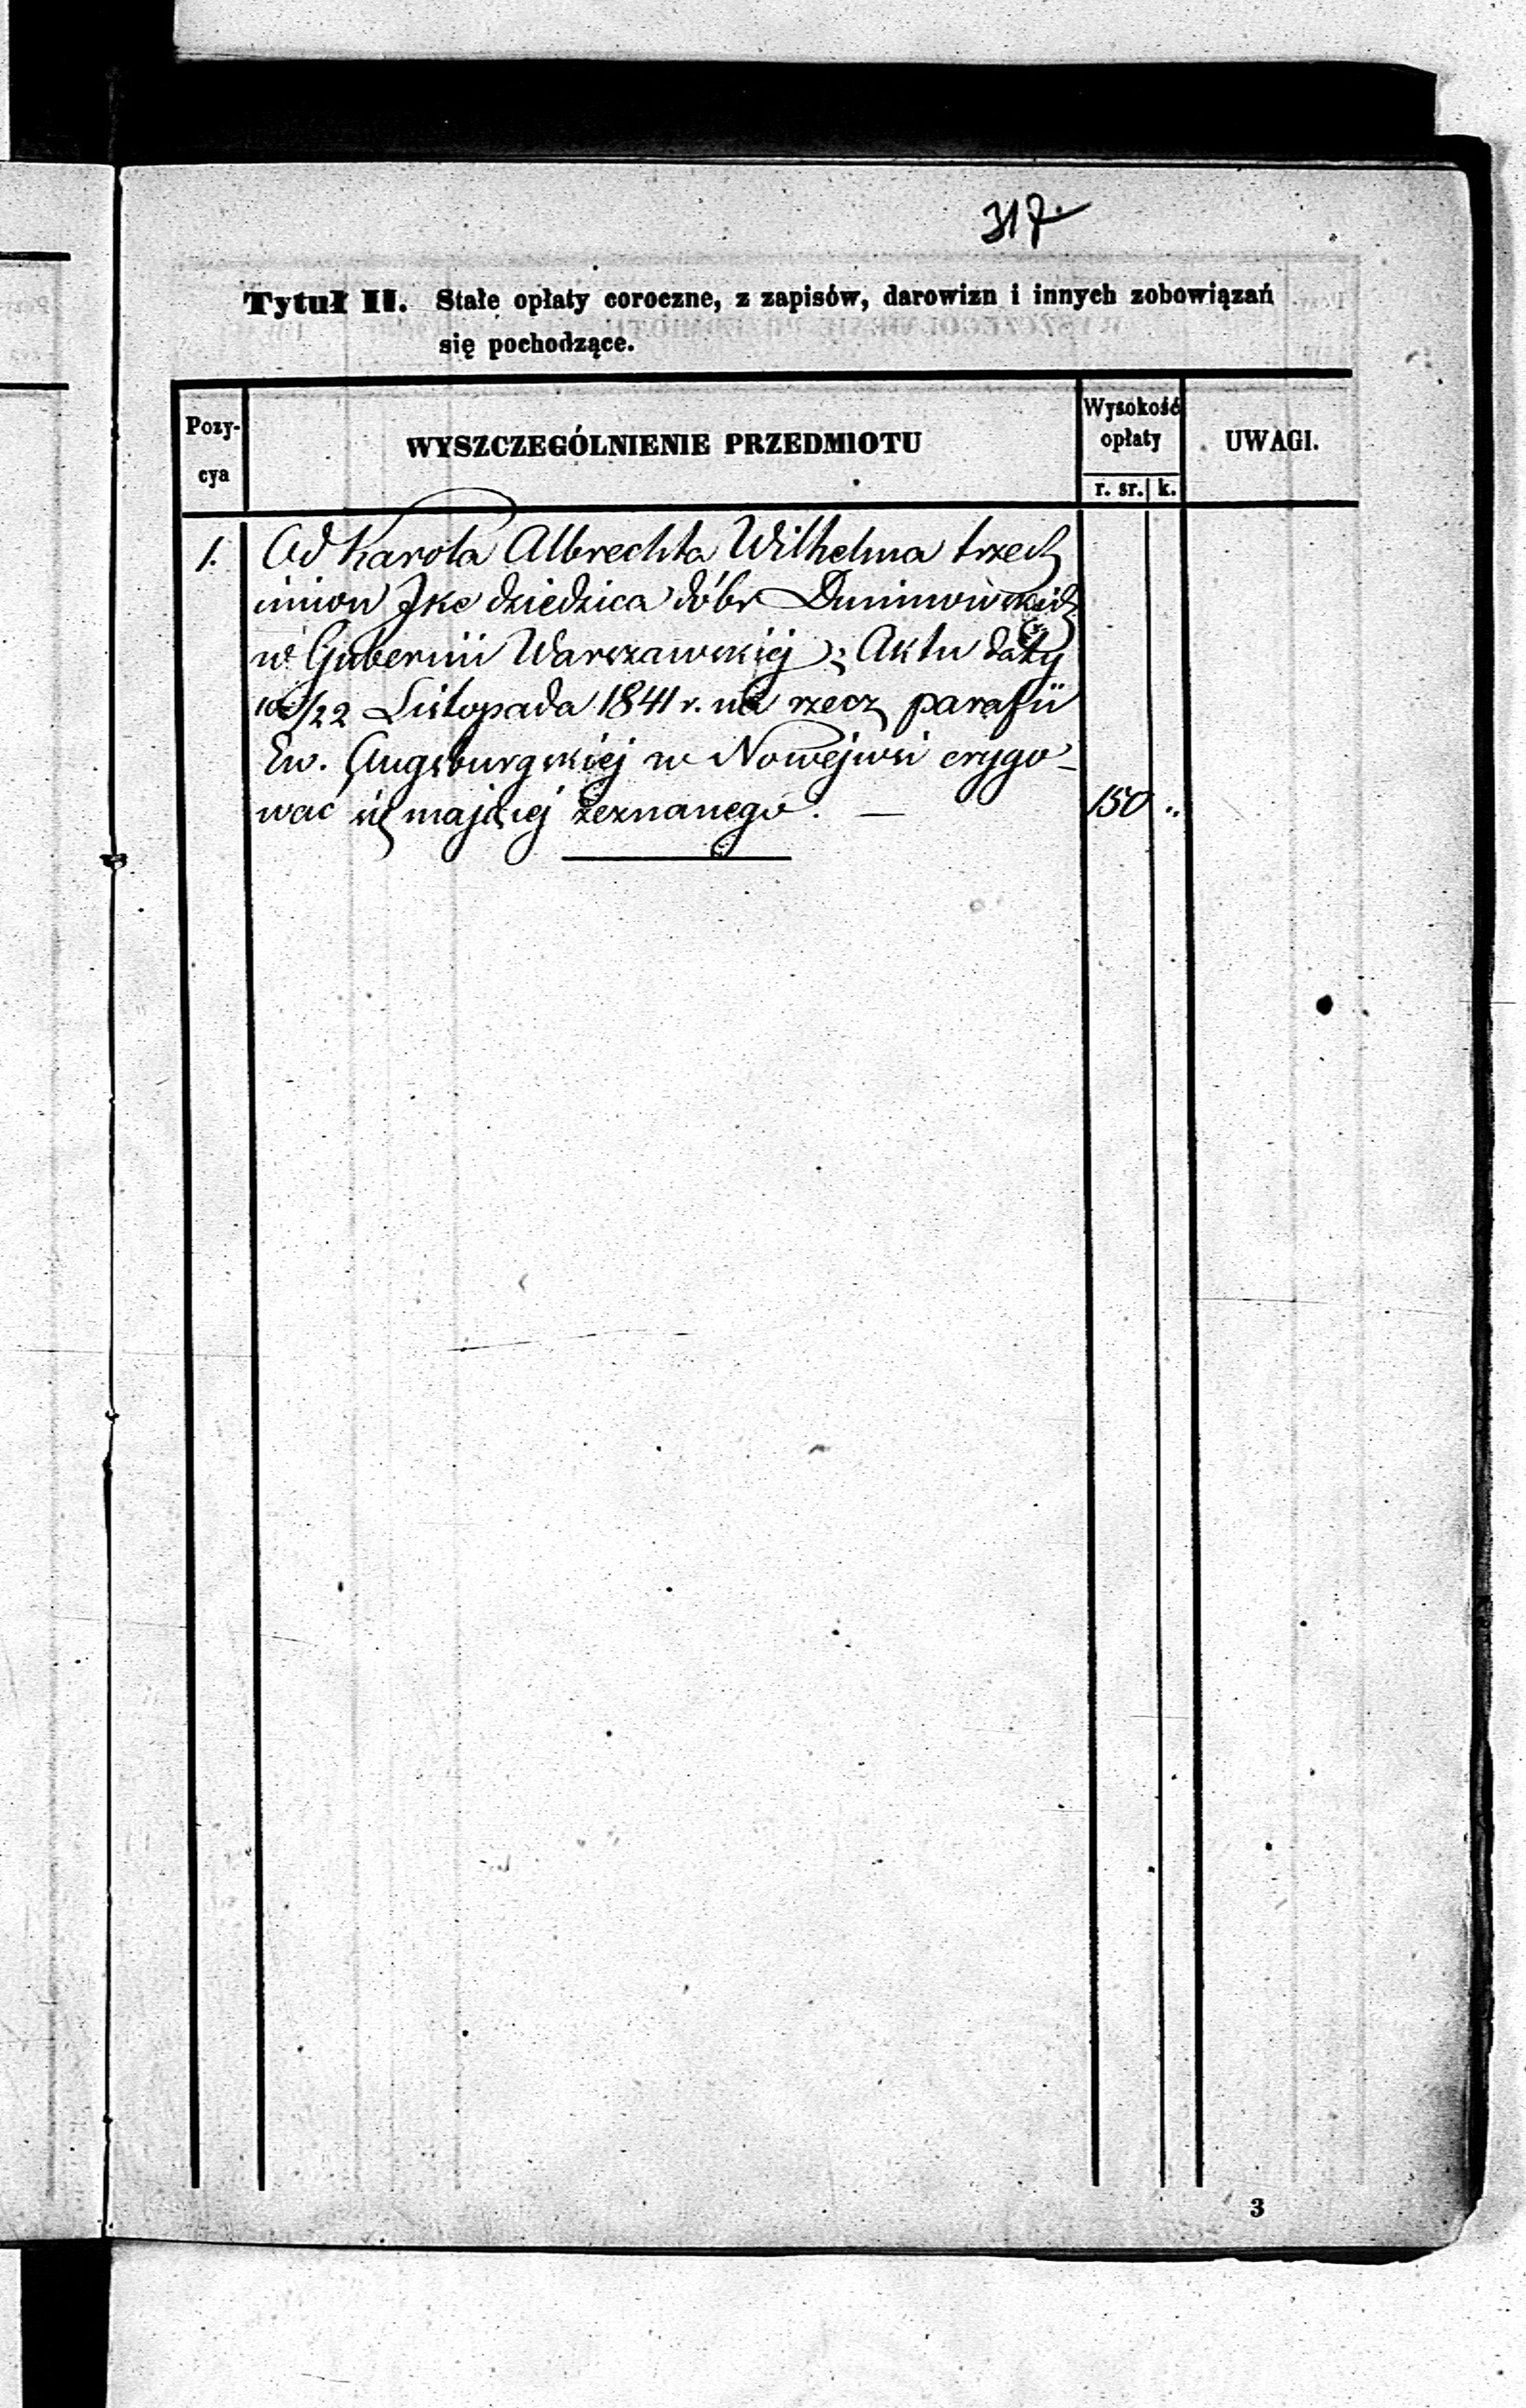 317.
Tytuł II. Stałe opłaty coroczne, z zapisów, darowizn i innych zobowiązań
się pochodzące.
Pozy-
cya
WYSZCZEGÓLNIENIE PRZEDMIOTU
Wysokość
opłaty
r. sr. k.
UWAGI.
1. Od Karola Albrechta Wilhelma trzech
imion Ike dziedzica dóbr Duninowskich
w Gubernii Warszawskiej z Aktu daty
10/22 Listopada 1841 r. na rzecz parafii
Ew. Augsburgskiej w Nowejwsi erygo-
wać się mającej zeznanego. — 150 "
3